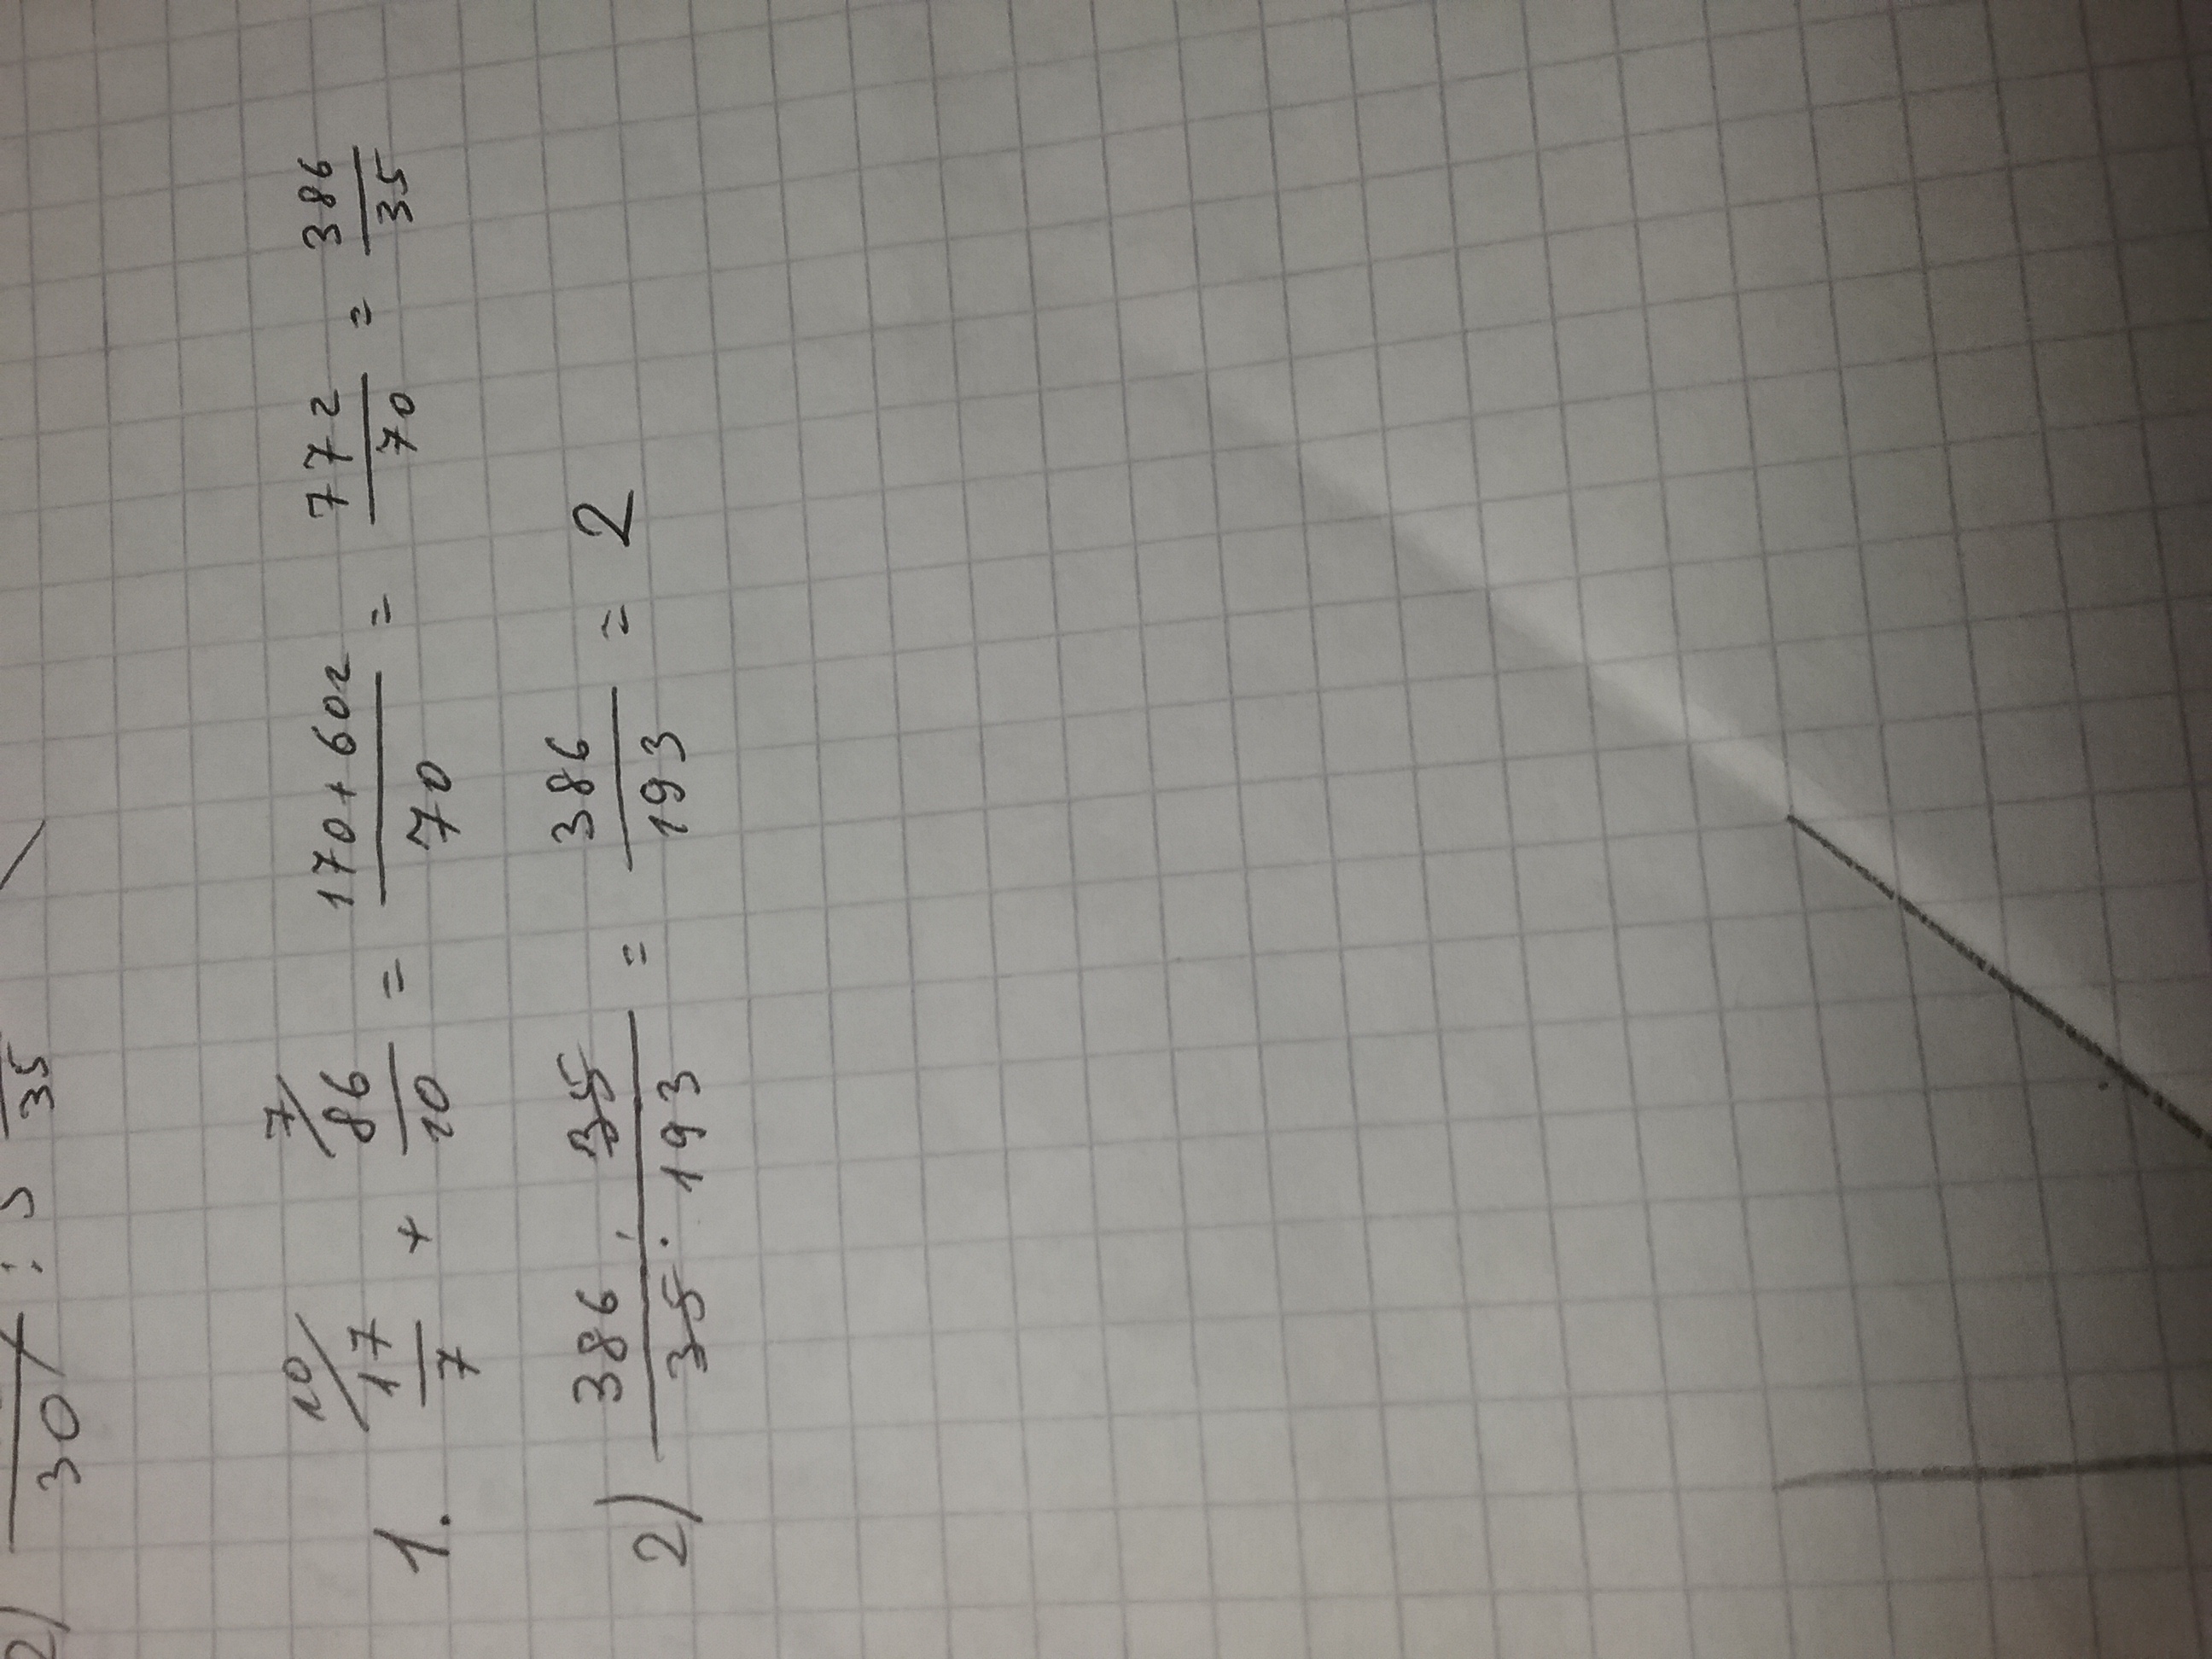 30 : 5 35
1. 10/ 17/7 + 7/ 86/10 = 170+602/70 = 772/70 = 386/35
2) 386 · 35/35 · 193 = 386/193 = 2